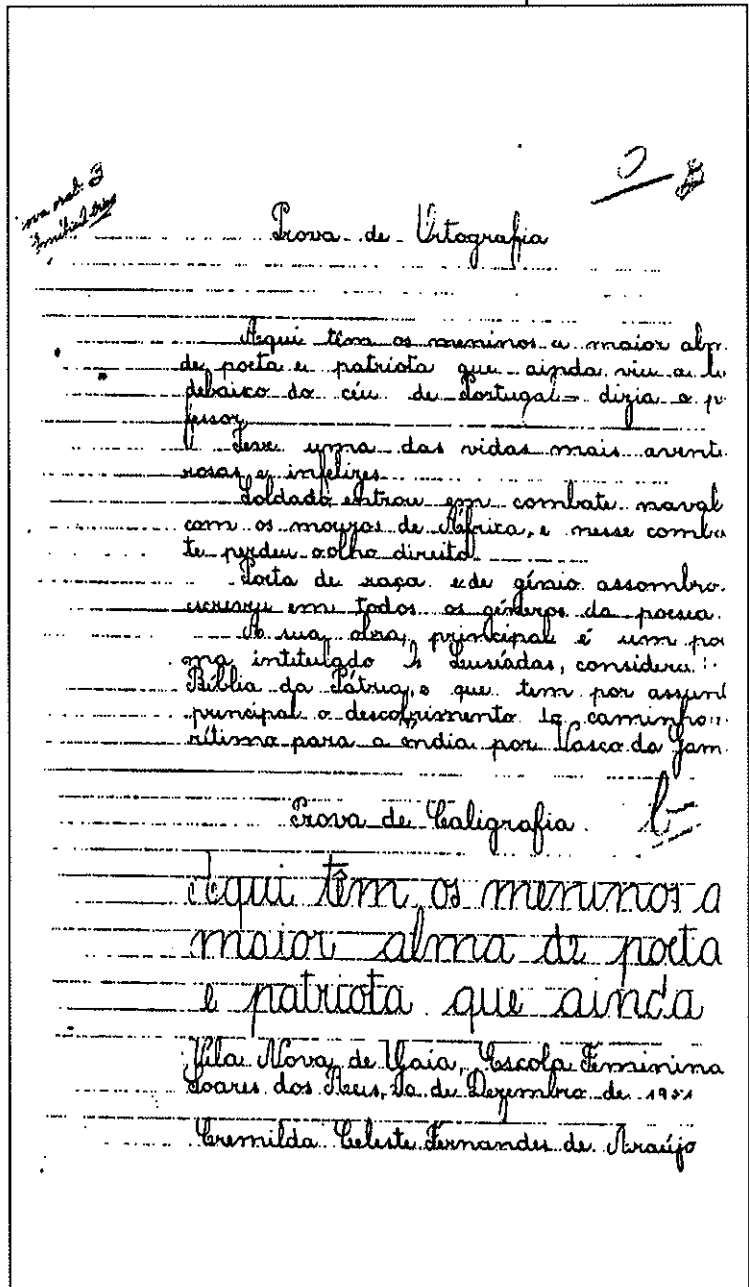 Prova de Ortografia
Aqui têm os meninos a maior alm
de poeta e patriota que ainda viu a lu
debaixo do céu de Portugal – dizia o p
fessor.
Teve uma das vidas mais avent
rosas e infelizes.
Soldado entrou em combate naval
com os mouros de África, e nesse comba
te perdeu o olho direito.
Poeta de raça e de génio assombro.
escreveu em todos os géneros da poesia.
A sua obra, principal é um po
ma intitulado Os Lusíadas, considera
Bíblia da Pátria, e que tem por assunt
principal o descobrimento do caminho
rítimo para a Índia por Vasco da Gam
Prova de Caligrafia
Aqui têm os meninos a
maior alma de poeta
e patriota que ainda
Vila Nova de Gaia, Escola Feminina
Soares dos Reis, de Dezembro de 1951
Cremilda Celeste Fernandes de Araújo